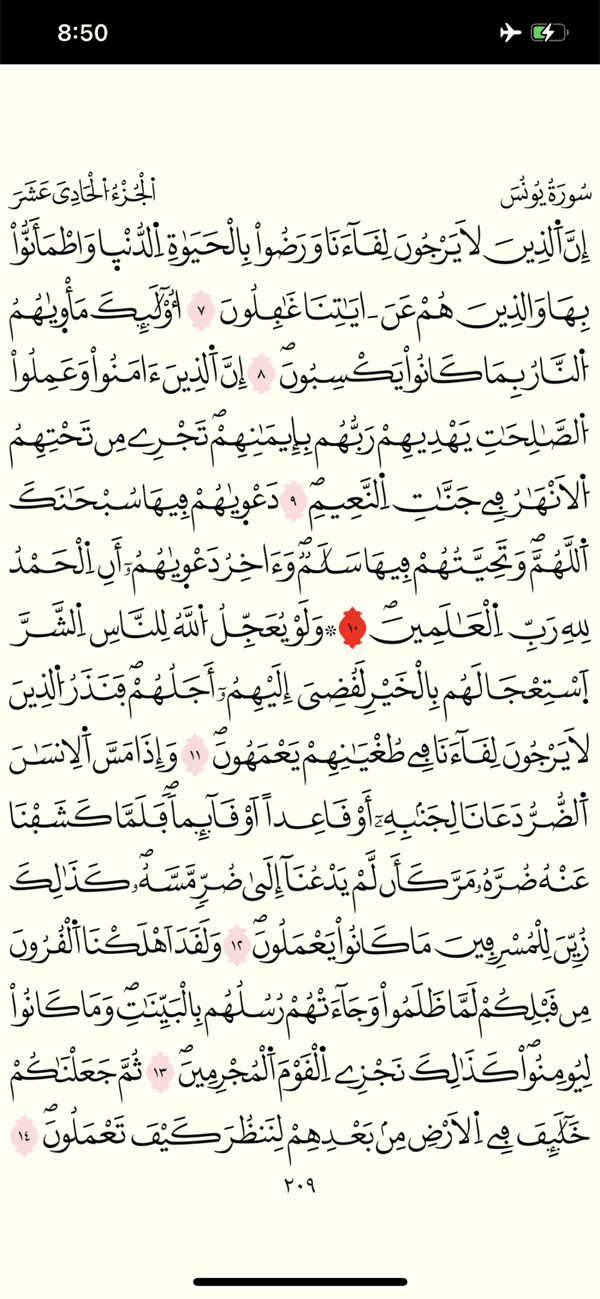 8:50
سُورَةُ يُونُسَ
اَلْجُزْءُ اَلْحَادِىَ عَشَرَ
إِنَّ اَ۬لذِينَ لَا يَرْجُونَ لِقَآءَنَا وَرَضُواْ بِالْحَيَوٰةِ اِ۬لدُّنْي۪ا وَاطْمَأَنُّواْ
بِهَا وَالذِينَ هُمْ عَنَ ـ ايَٰتِنَا غَٰفِلُونَ ٧ أُوْلَٰٓئِكَ مَأْو۪يٰهُمُ
اُ۬لنَّارُ بِمَا كَانُواْ يَكْسِبُونَۖ ٨ إِنَّ اَ۬لذِينَ ءَامَنُواْ وَعَمِلُواْ
اُ۬لصَّٰلِحَٰتِ يَهْدِيهِمْ رَبُّهُم بِإِيمَٰنِهِمْۖ تَجْرِے مِن تَحْتِهِمُ
اُ۬لَانْهَٰرُ فِے جَنَّٰتِ اِ۬لنَّعِيمِۖ ٩ دَعْو۪يٰهُمْ فِيهَا سُبْحَٰنَكَ
اَ۬للَّهُمَّۖ وَتَحِيَّتُهُمْ فِيهَا سَلَٰمٞۖ وَءَاخِرُ دَعْو۪يٰهُمُۥٓ أَنِ اِ۬لْحَمْدُ
لِلهِ رَبِّ اِ۬لْعَٰلَمِينَۖ ١٠ ۞وَلَوْ يُعَجِّلُ اُ۬للَّهُ لِلنَّاسِ اِ۬لشَّرَّ
اَ۪سْتِعْجَالَهُم بِالْخَيْرِ لَقُضِىَ إِلَيْهِمُۥٓ أَجَلُهُمْۖ فَنَذَرُ اُ۬لذِينَ
لَا يَرْجُونَ لِقَآءَنَا فِے طُغْيَٰنِهِمْ يَعْمَهُونَۖ ١١ وَإِذَا مَسَّ اَ۬لِانسَٰنَ
اَ۬لضُّرُّ دَعَانَا لِجَنۢبِهِۦٓ أَوْ قَاعِداً اَوْ قَآئِماٗۖ فَلَمَّا كَشَفْنَا
عَنْهُ ضُرَّهُۥ مَرَّ كَأَن لَّمْ يَدْعُنَآ إِلَىٰ ضُرّٖ مَّسَّهُۥۖ كَذَٰلِكَ
زُيِّنَ لِلْمُسْرِفِينَ مَا كَانُواْ يَعْمَلُونَۖ ١٢ وَلَقَدَ اَهْلَكْنَا اَ۬لْقُرُونَ
مِن قَبْلِكُمْ لَمَّا ظَلَمُواْ وَجَآءَتْهُمْ رُسُلُهُم بِالْبَيِّنَٰتِۖ وَمَا كَانُواْ
لِيُومِنُواْۖ كَذَٰلِكَ نَجْزِے اِ۬لْقَوْمَ اَ۬لْمُجْرِمِينَۖ ١٣ ثُمَّ جَعَلْنَٰكُمْ
خَلَٰٓئِفَ فِے اِ۬لَارْضِ مِنۢ بَعْدِهِمْ لِنَنظُرَ كَيْفَ تَعْمَلُونَۖ ١٤
٢٠٩